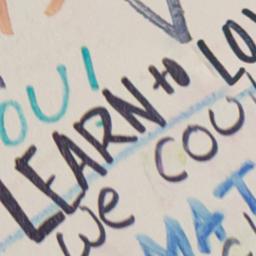 OU!
LEARN to LO
we COU
MAT